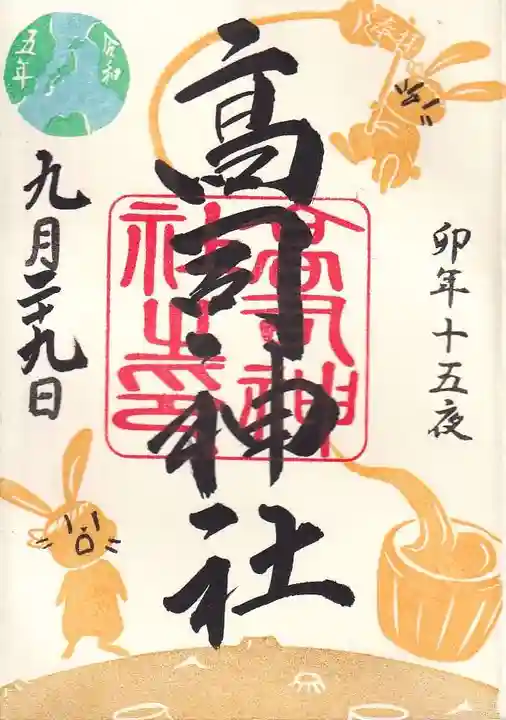 奉拝
卯年十五夜
高司神社
高司神社之印
令和
五年
九月二十九日